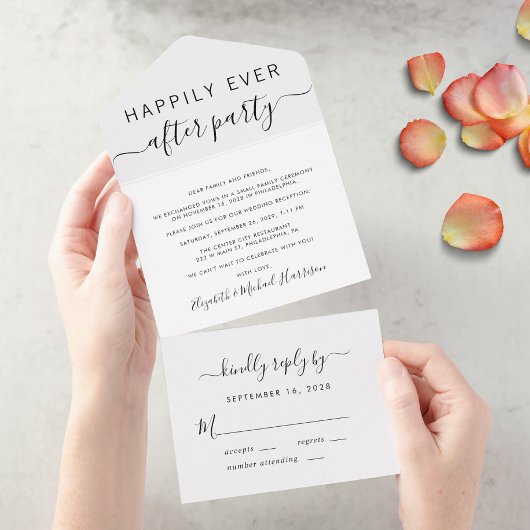 HAPPILY EVER
after party
DEAR FAMILY AND FRIENDS,
WE EXCHANGED VOWS IN A SMALL FAMILY CEREMONY
ON NOVEMBER 16, 2028 IN PHILADELPHIA.
PLEASE JOIN US FOR OUR WEDDING RECEPTION:
SATURDAY, SEPTEMBER 26, 2029, 7:11 PM
THE CENTER CITY RESTAURANT
223 W MAIN STREET, PHILADLEPHIA, PA
WE CAN'T WAIT TO CELEBRATE WITH YOU!
WITH LOVE,
Elizabeth & Michael Harrison
kindly reply by
SEPTEMBER 16, 2028
M
accepts regrets
number attending